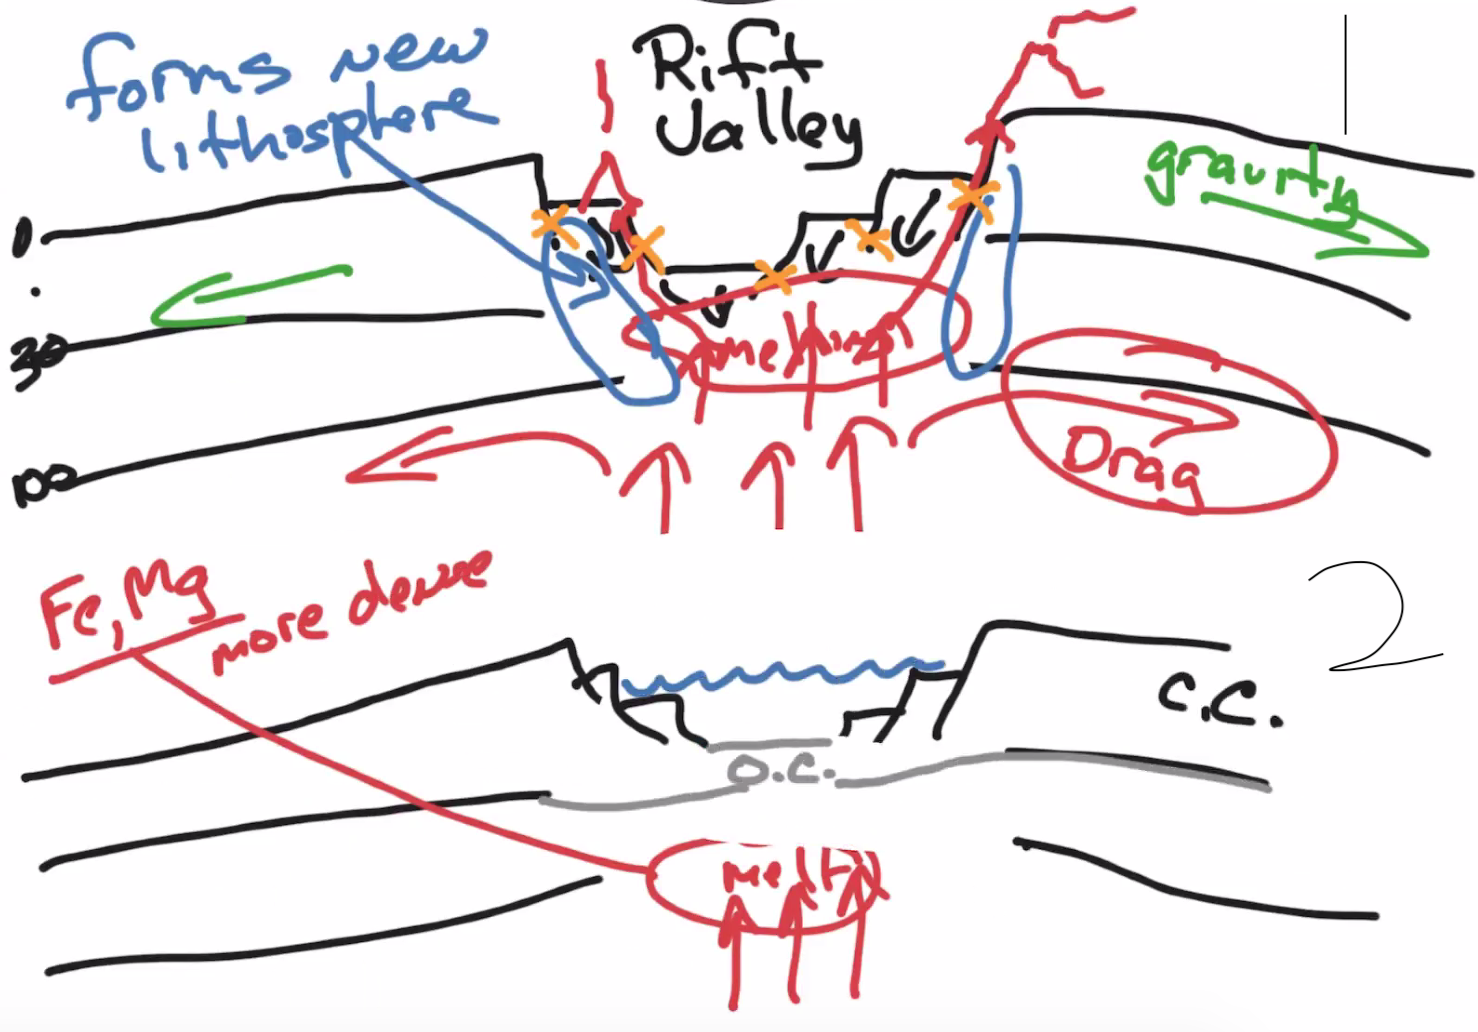 forms new
lithosphere
Rift
Valley
1
gravity
0
30
100
melting
Drag
Fe, Mg
more dense
2
C.C.
O.C.
melt